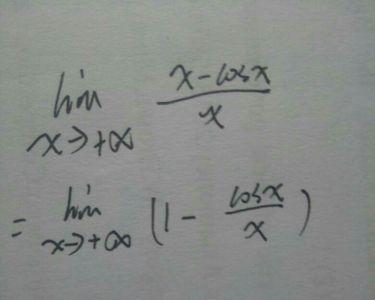 lim x→+∞ (x - cos x)/x
= lim x→+∞ (1 - cos x/x)